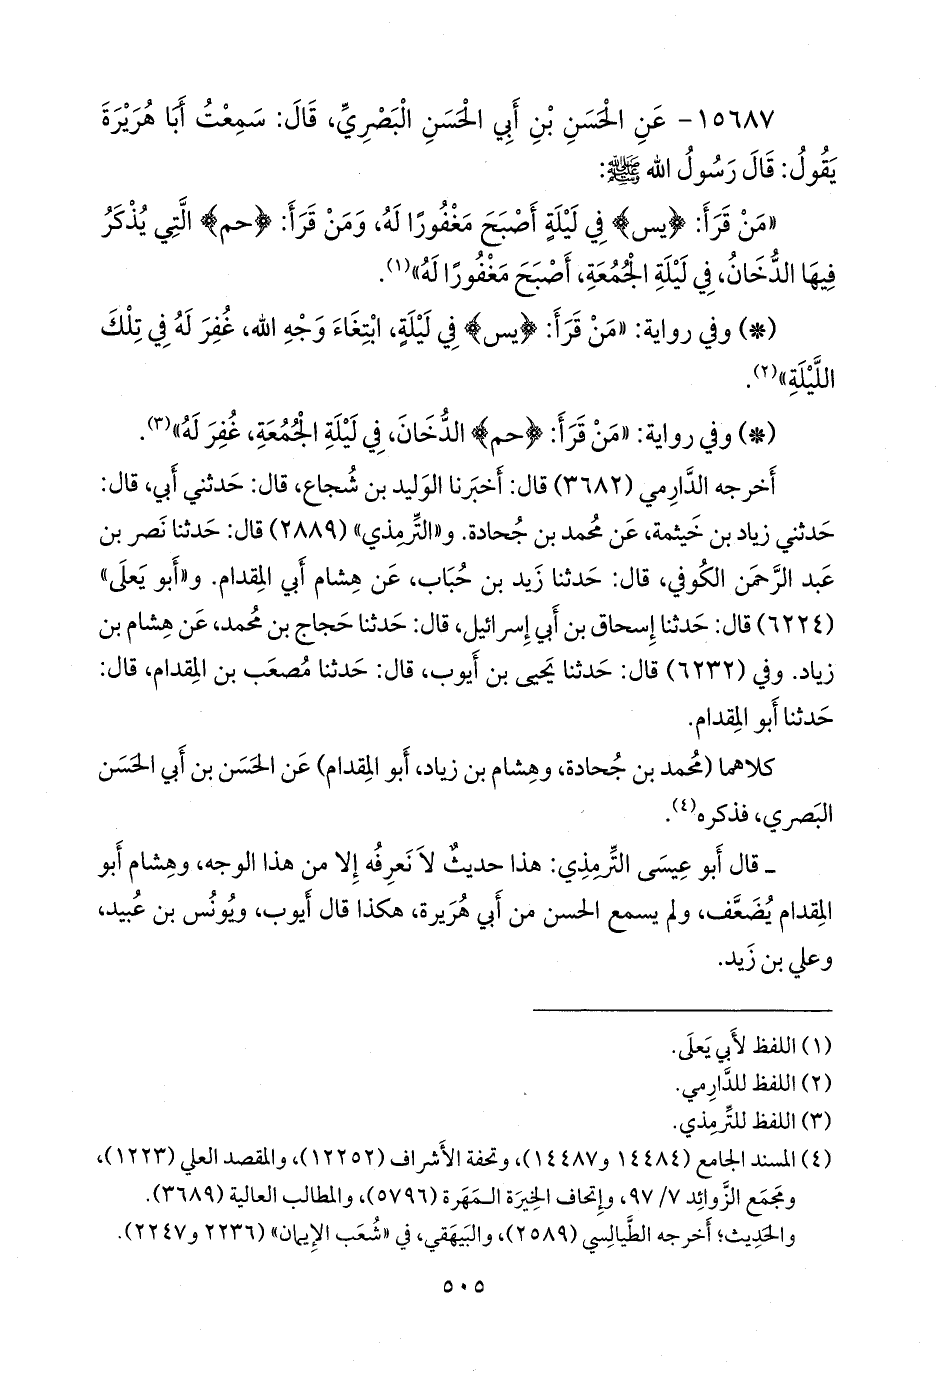 ١٥٦٨٧- عَنِ الْحَسَنِ بْنِ أَبِي الْحَسَنِ الْبَصْرِيِّ، قَالَ: سَمِعْتُ أَبَا هُرَيْرَةَ
يَقُولُ: قَالَ رَسُولُ الله ﷺ:
«مَنْ قَرَأَ: ﴿يس﴾ فِي لَيْلَةٍ أَصْبَحَ مَغْفُورًا لَهُ، وَمَنْ قَرَأَ: ﴿حم﴾ الَّتِي يُذْكَرُ
فِيهَا الدُّخَانُ، فِي لَيْلَةِ الْجُمُعَةِ، أَصْبَحَ مَغْفُورًا لَهُ»(١).
(*) وفي رواية: «مَنْ قَرَأَ: ﴿يس﴾ فِي لَيْلَةٍ، ابْتِغَاءَ وَجْهِ الله، غُفِرَ لَهُ فِي تِلْكَ
اللَّيْلَةِ»(٢).
(*) وفي رواية: «مَنْ قَرَأَ: ﴿حم﴾ الدُّخَانَ، فِي لَيْلَةِ الْجُمُعَةِ، غُفِرَ لَهُ»(٣).
أَخرجه الدَّارِمي (٣٦٨٢) قال: أَخبَرنا الوَليد بن شُجاع، قال: حَدثني أَبي، قال:
حَدثني زياد بن خَيثمة، عَن مُحمد بن جُحادة. و«التِّرمِذي» (٢٨٨٩) قال: حَدثنا نَصر بن
عَبد الرَّحمَن الكُوفي، قال: حَدثنا زَيد بن حُبَاب، عَن هِشام أَبي المِقدام. و«أَبو يَعلَى»
(٦٢٢٤) قال: حَدثنا إِسحاق بن أَبي إِسرائيل، قال: حَدثنا حَجاج بن مُحمد، عَن هِشام بن
زياد. وفي (٦٢٣٢) قال: حَدثنا يَحيى بن أَيوب، قال: حَدثنا مُصعَب بن المِقدام، قال:
حَدثنا أَبو المِقدام.
كلاهما (مُحمد بن جُحادة، وهِشام بن زياد، أَبو المِقدام) عَن الحَسَن بن أَبي الحَسَن
البَصري، فذكره(٤).
ـ قال أَبو عِيسَى التِّرمِذي: هذا حديثٌ لاَ نَعرِفُه إِلا من هذا الوجه، وهِشام أَبو
المِقدام يُضَعَّف، ولم يسمع الحسن من أَبي هُرَيرة، هكذا قال أَيوب، ويُونُس بن عُبيد،
وعلي بن زَيد.
(١) اللفظ لأَبي يَعلَى.
(٢) اللفظ للدَّارِمي.
(٣) اللفظ للتِّرمِذي.
(٤) المسند الجامع (١٤٤٨٤ و١٤٤٨٧)، وتحفة الأَشراف (١٢٢٥٢)، والمقصد العلي (١٢٢٣)،
ومَجمَع الزَّوائِد ٧/ ٩٧، وإِتحاف الخِيرَة المَهَرة (٥٧٩٦)، والمطالب العالية (٣٦٨٩).
والحَدِيث؛ أَخرجه الطَّيالِسي (٢٥٨٩)، والبَيهَقي، في «شُعَب الإِيمان» (٢٢٣٦ و٢٢٤٧).
٥٠٥